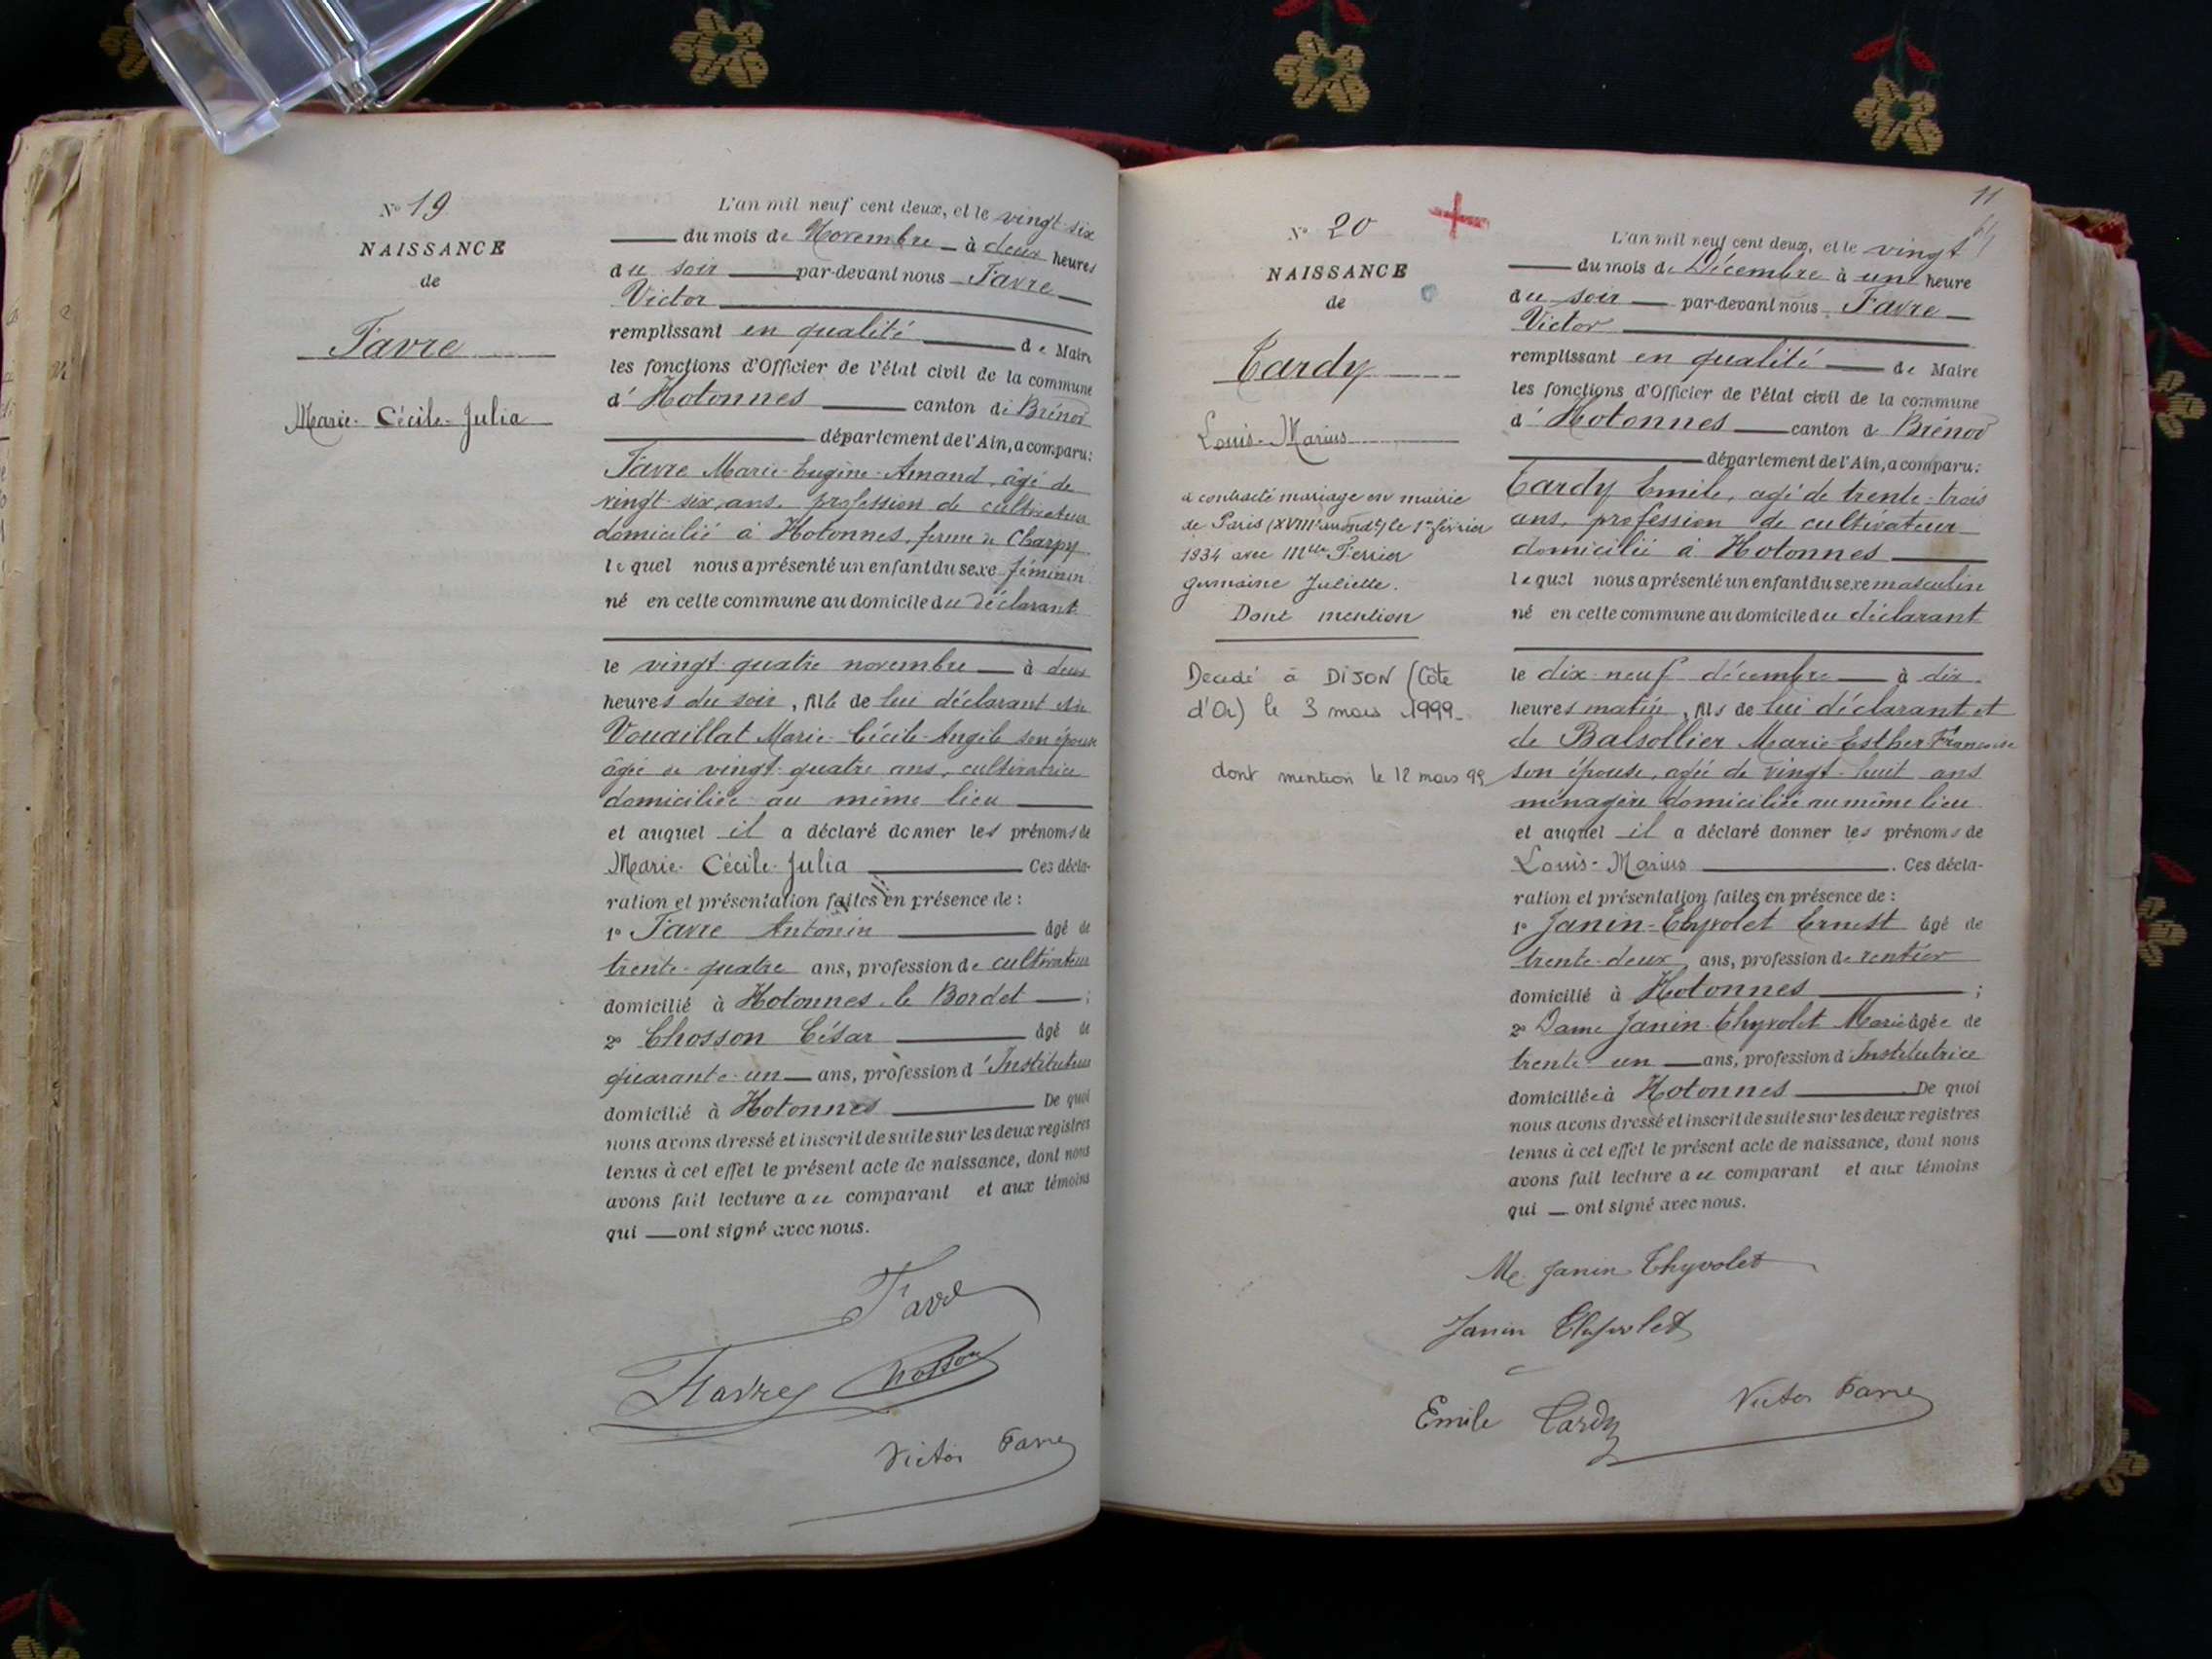 Nº 19
NAISSANCE
de
Favre
Marie-Cécile-Julia
L'an mil neuf cent deux, et le vingt-six
du mois de Novembre à deux heures
du soir par-devant nous Favre
Victor
remplissant en qualité de Maire
les fonctions d'Officier de l'état civil de la commune
d'Hotonnes canton de Brénod
département de l'Ain, a comparu:
Favre Marie-Eugène-Amand, âgé de
vingt-six ans, profession de cultivateur
domicilié à Hotonnes, ferme de Charpy
lequel nous a présenté un enfant du sexe féminin
né en cette commune au domicile du déclarant
le vingt-quatre novembre à deux
heures du soir, fille de lui déclarant et de
Vouaillat Marie-Cécile-Angèle son épouse
âgée de vingt-quatre ans, cultivatrice
domiciliée au même lieu
et auquel il a déclaré donner les prénoms de
Marie-Cécile-Julia Ces décla-
ration et présentation faites en présence de :
1º Favre Antonin âgé de
trente-quatre ans, profession de cultivateur
domicilié à Hotonnes, le Bordet ;
2º Chosson César âgé de
quarante-un ans, profession d'Instituteur
domicilié à Hotonnes De quoi
nous avons dressé et inscrit de suite sur les deux registres
tenus à cet effet le présent acte de naissance, dont nous
avons fait lecture au comparant et aux témoins
qui ont signé avec nous.
Favre
Favre Chosson
Victor Favre
11
Nº 20
NAISSANCE
de
Tardy
Louis-Marius
a contracté mariage en mairie
de Paris (XVIIIe arrondt) le 1er février
1934 avec Mlle Ferrier
Germaine Juliette.
Dont mention
Décédé à DIJON (Côte
d'Or) le 3 mars 1999
dont mention le 12 mars 99
L'an mil neuf cent deux, et le vingt
du mois de Décembre à une heure
du soir par-devant nous Favre
Victor
remplissant en qualité de Maire
les fonctions d'Officier de l'état civil de la commune
d'Hotonnes canton de Brénod
département de l'Ain, a comparu:
Tardy Emile, agé de trente-trois
ans, profession de cultivateur
domicilié à Hotonnes
lequel nous a présenté un enfant du sexe masculin
né en cette commune au domicile du déclarant
le dix-neuf décembre à dix
heures matin, fils de lui déclarant et
de Balsollier Marie-Esther Françoise
son épouse, agée de vingt-huit ans
ménagère domiciliée au même lieu
et auquel il a déclaré donner les prénoms de
Louis-Marius. Ces décla-
ration et présentation faites en présence de :
1º Janin-Thyvolet Ernest âgé de
trente-deux ans, profession de rentier
domicilié à Hotonnes ;
2º Dame Janin-Thyvolet Marie âgée de
trente-un ans, profession d'Institutrice
domiciliée à Hotonnes De quoi
nous avons dressé et inscrit de suite sur les deux registres
tenus à cet effet le présent acte de naissance, dont nous
avons fait lecture au comparant et aux témoins
qui ont signé avec nous.
M. Janin Thyvolet
Janin Thyvolet
Emile Tardy Victor Favre